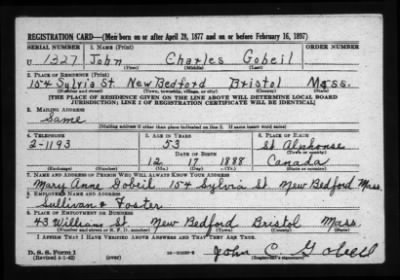 REGISTRATION CARD—(Men born on or after April 28, 1877 and on or before February 16, 1897)
SERIAL NUMBER 1. NAME (Print)
U 1327 John Charles Gobeil
(First) (Middle) (Last)
2. PLACE OF RESIDENCE (Print)
154 Sylvia St New Bedford Bristol Mass.
(Number and street) (Town, township, village, or city) (County) (State)
[THE PLACE OF RESIDENCE GIVEN ON THE LINE ABOVE WILL DETERMINE LOCAL BOARD
JURISDICTION; LINE 2 OF REGISTRATION CERTIFICATE WILL BE IDENTICAL]
3. MAILING ADDRESS
Same
[Mailing address if other than place indicated on line 2. If same insert word same]
4. TELEPHONE 5. AGE IN YEARS 6. PLACE OF BIRTH
2-1193 53 St. Alphonse
DATE OF BIRTH (Town or county)
12 17 1888 Canada
(Exchange) (Number) (Mo.) (Day) (Yr.) (State or country)
7. NAME AND ADDRESS OF PERSON WHO WILL ALWAYS KNOW YOUR ADDRESS
Mary Anne Gobeil 154 Sylvia St. New Bedford Mass.
8. EMPLOYER'S NAME AND ADDRESS
Sullivan & Foster
9. PLACE OF EMPLOYMENT OR BUSINESS
43 William St New Bedford Bristol Mass
(Number and street or R. F. D. number) (Town) (County) (State)
I AFFIRM THAT I HAVE VERIFIED ABOVE ANSWERS AND THAT THEY ARE TRUE.
D. S. S. Form 1
(Revised 4-1-42) (over) John C Gobeil